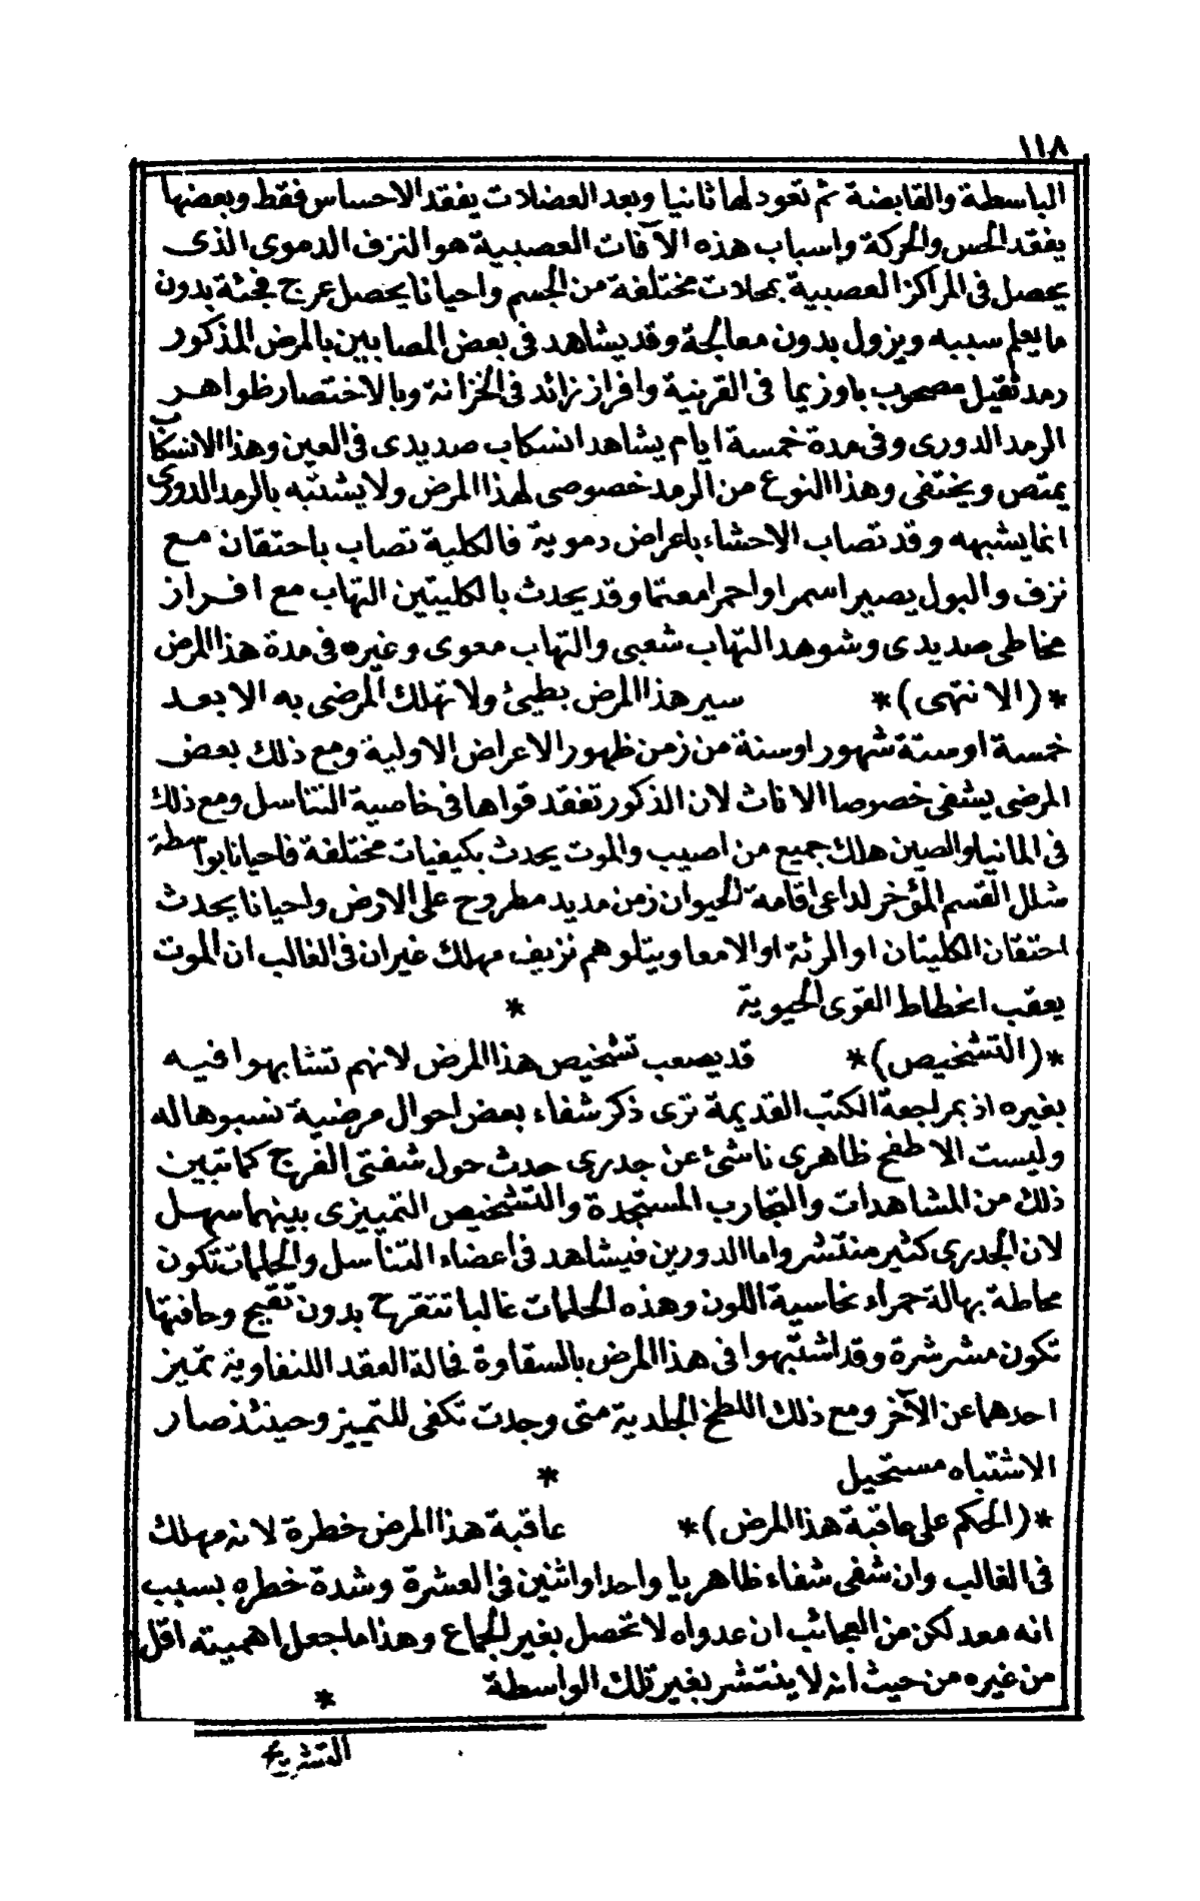 ١١٨
الباسطة والقابضة ثم تعود لها ثانيا وبعد العضلات يفقد الاحساس فقط وبعضها
يفقد الحس والحركة واسباب هذه الآفات العصبية هو النزف الدموى الذى
يحصل فى المراكز العصبية بمحلات مختلفة من الجسم واحيانا يحصل عرج فجئة بدون
ما يعلم سببه ويزول بدون معالجة وقد يشاهد فى بعض المصابين بالمرض المذكور
رمد ثقيل مصحوب باوزيما فى القرنية وافراز زائد فى الخزانة وبالاختصار ظواهر
الرمد الدورى وفى مدة خمسة ايام يشاهد انسكاب صديدى فى العين وهذا الانسكاب
يمتص ويختفى وهذا النوع من الرمد خصوصى لهذا المرض ولا يشتبه بالرمد الدورى
انما يشبهه وقد تصاب الاحشاء باعراض دموية فالكلية تصاب باحتقان مع
نزف والبول يصير اسمر او احمر معتما وقد يحدث بالكليتين التهاب مع افراز
مخاطى صديدى وشوهد التهاب شعبى والتهاب معوى وغيره فى مدة هذا المرض
*(الانتهى)* سير هذا المرض بطيئ ولا تهلك المرضى به الا بعد
خمسة او ستة شهور او سنة من زمن ظهور الاعراض الاولية ومع ذلك بعض
المرضى يشفى خصوصا الاناث لان الذكور تفقد قواها فى خاصية التناسل ومع ذلك
فى المانيا والصين هلك جميع من اصيب والموت يحدث بكيفيات مختلفة فاحيانا بواسطة
شلل القسم المؤخر لداعى اقامة الحيوان زمن مديد مطروح على الارض واحيانا يحدث
احتقان الكليتان او الرئة او الامعا ويتلوهم نزيف مهلك غير ان فى الغالب ان الموت
يعقب انحطاط القوى الحيوية *
*(التشخيص)* قد يصعب تشخيص هذا المرض لانهم تشابهوا فيه
بغيره اذ بمراجعة الكتب القديمة ترى ذكر شفاء بعض احوال مرضية نسبوها له
وليست الا طفح ظاهرى ناشئ عن جدرى حدث حول شفتى الفرج كما تبين
ذلك من المشاهدات والتجارب المستجدة والتشخيص التمييزى بينهما سهل
لان الجدرى كثير منتشر واما الدورين فيشاهد فى اعضاء التناسل والحلمات تكون
محاطة بهالة حمراء نحاسية اللون وهذه الحلمات غالبا تتقرح بدون تقيح وحافتها
تكون مشرشرة وقد اشتبهوا فى هذا المرض بالسقاوة فحالة العقد اللنفاوية تميز
احدهما عن الآخر ومع ذلك اللطخ الجلدية متى وجدت تكفى للتمييز وحينئذ صار
الاشتباه مستحيل *
*(الحكم على عاقبة هذا المرض)* عاقبة هذا المرض خطرة لانه مهلك
فى الغالب وان شفى شفاء ظاهريا واحدا واثنين فى العشرة وشدة خطره بسبب
انه معد لكن من العجائب ان عدواه لا تحصل بغير الجماع وهذا ما جعل اهميته اقل
من غيره من حيث انه لا ينتشر بغير تلك الواسطة *
التشريح